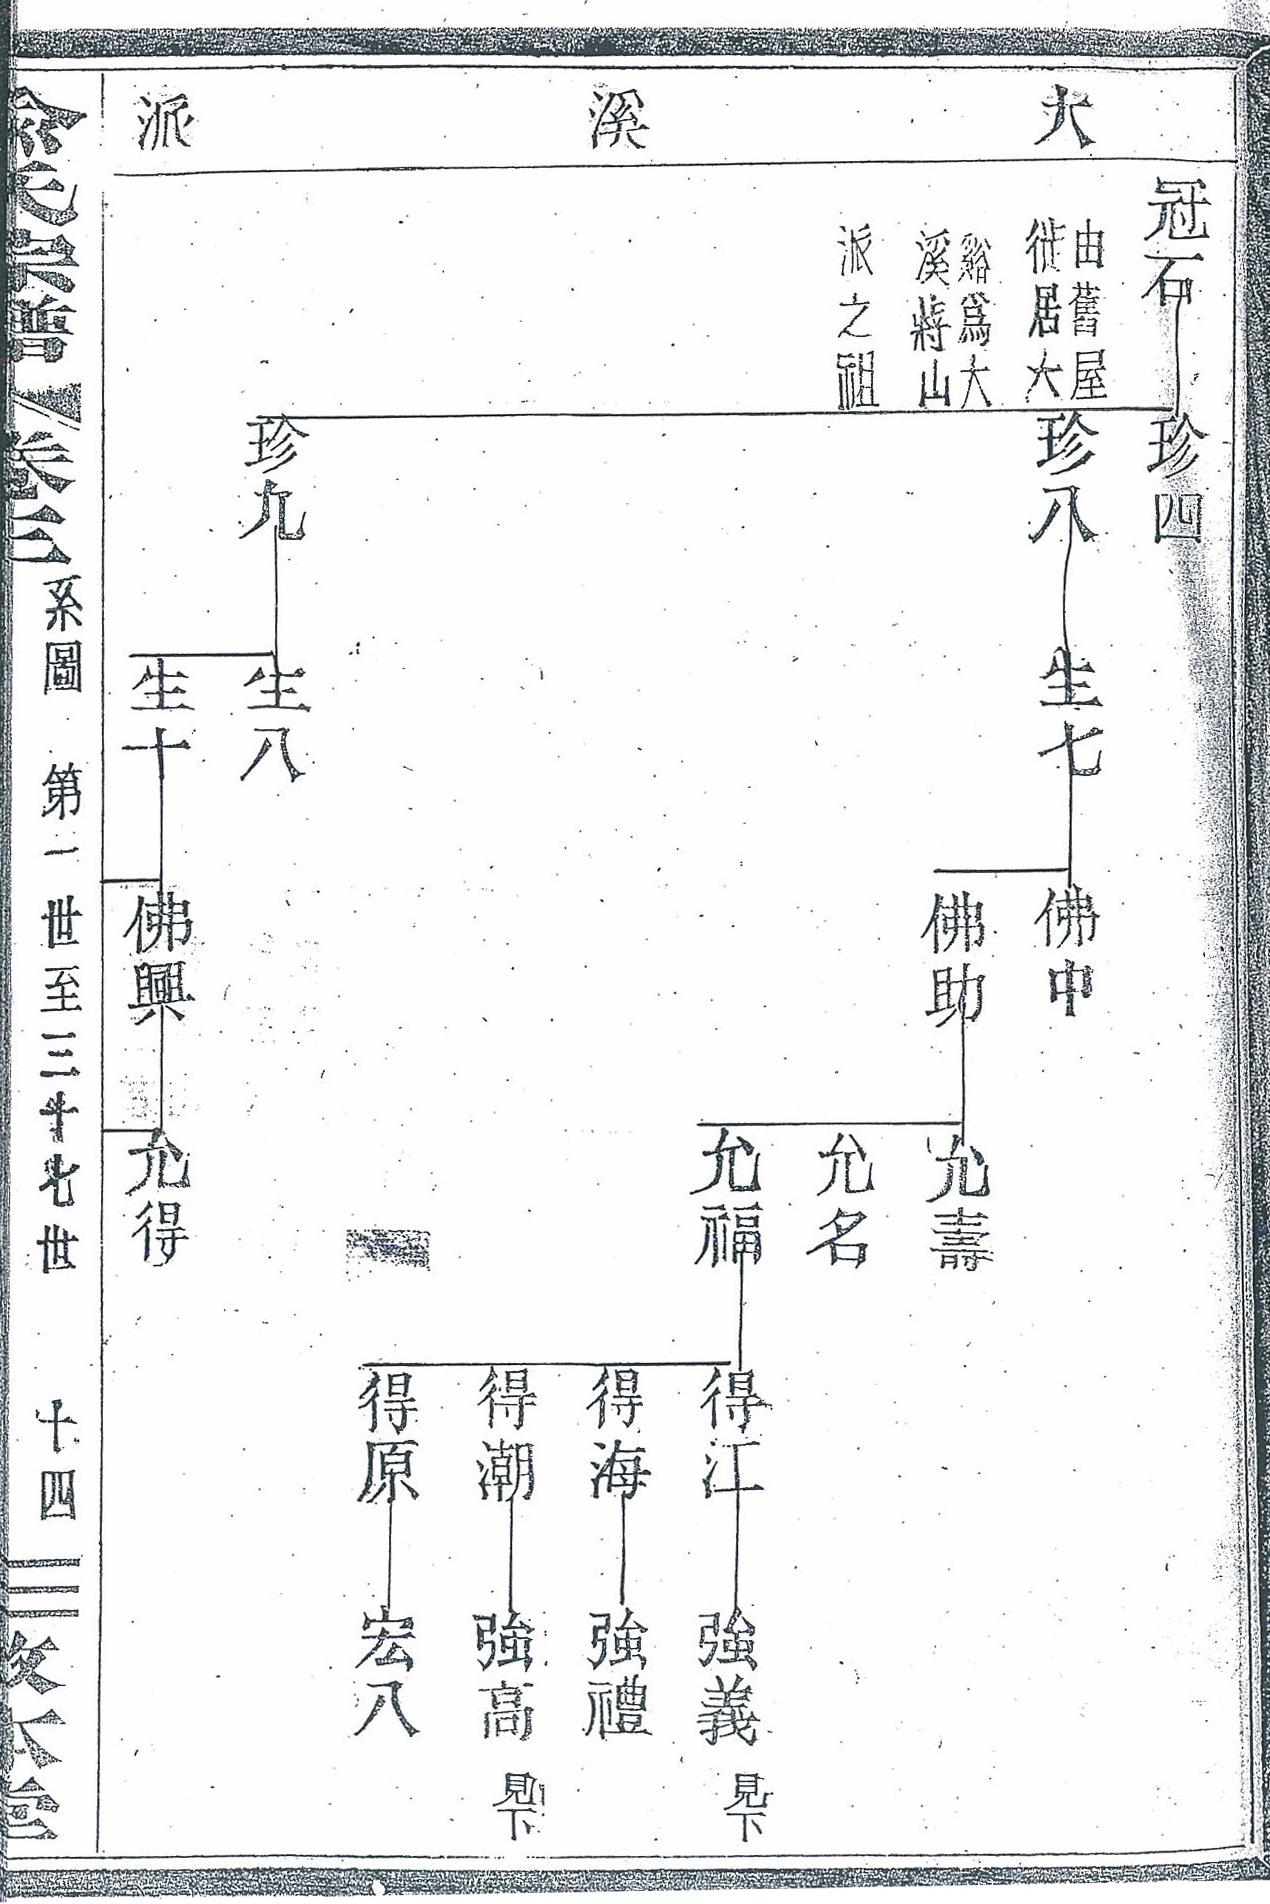 大溪派
冠石
珍四
珍八
由舊屋
徙居大
谿爲大
溪蔣山
派之祖
珍九
生七
生八
生十
佛中
佛助
佛興
允壽
允名
允福
允得
得江
得海
得潮
得原
強義
見下
強禮
強高
見下
宏八
宗譜
卷三
系圖
第一世至三十七世
十四